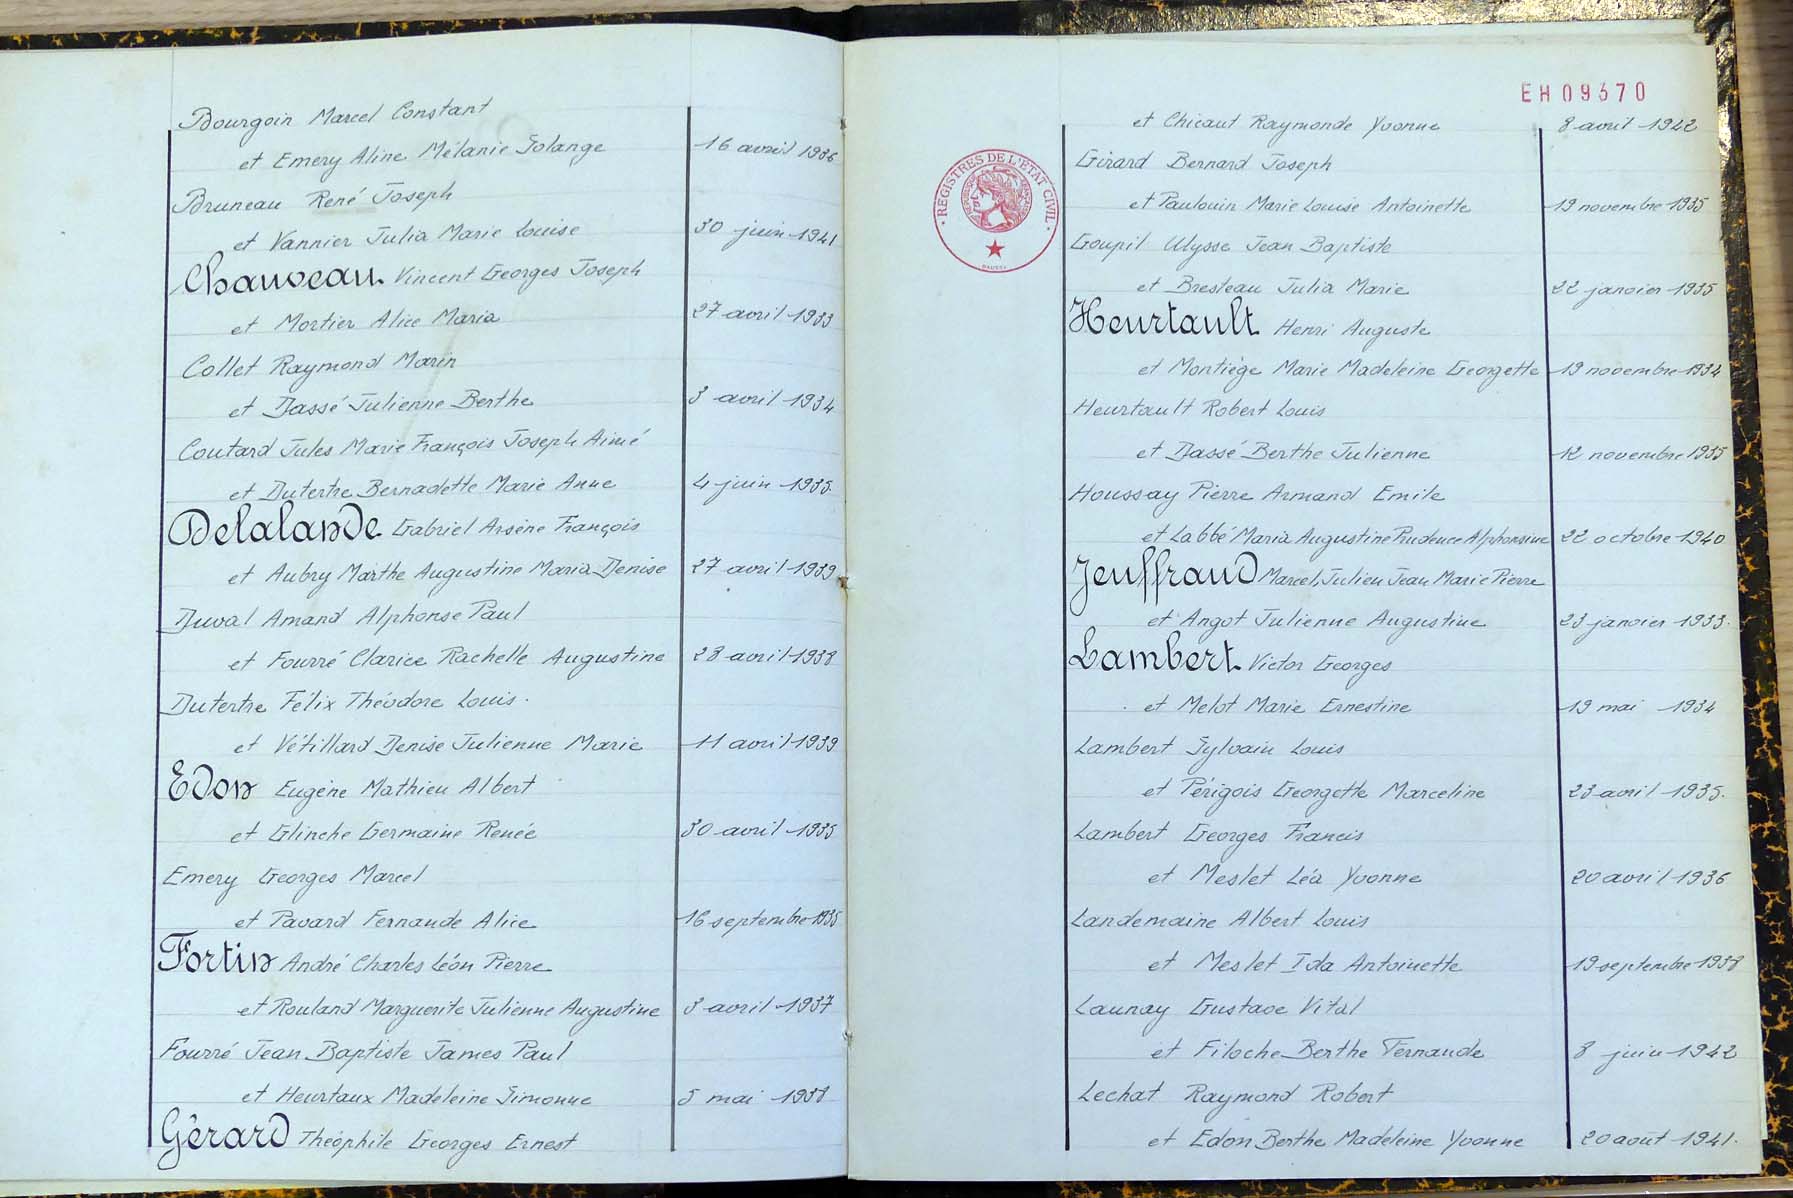 Bourgoin Marcel Constant
et Emery Aline Mélanie Solange 16 avril 1936
Bruneau René Joseph
et Vannier Julia Marie Louise 30 juin 1941
Chauveau Vincent Georges Joseph
et Mortier Alice Maria 27 avril 1933
Collet Raymond Marin
et Dassé Julienne Berthe 3 avril 1934
Coutard Jules Marie François Joseph Aimé
et Dutertre Bernadette Marie Anne 4 juin 1935
Delalande Gabriel Arsène François
et Aubry Marthe Augustine Maria Denise 27 avril 1939
Duval Amand Alphonse Paul
et Fourré Clarice Rachelle Augustine 28 avril 1938
Dutertre Félix Théodore Louis.
et Vétillard Denise Julienne Marie 11 avril 1939
Edon Eugène Mathieu Albert
et Glinche Germaine Renée 30 avril 1935
Emery Georges Marcel
et Pavard Fernande Alice 16 septembre 1935
Fortin André Charles Léon Pierre
et Rouland Marguerite Julienne Augustine 3 avril 1937
Fourré Jean Baptiste James Paul
et Heurtaux Madeleine Simonne 5 mai 1938
Gérard Théophile Georges Ernest
EH09370
et Chicaut Raymonde Yvonne 8 avril 1942
REGISTRES DE L'ETAT CIVIL
Girard Bernard Joseph
et Paulouin Marie Louise Antoinette 19 novembre 1935
Goupil Ulysse Jean Baptiste
et Bresteau Julia Marie 22 janvier 1935
Heurtault Henri Auguste
et Montiège Marie Madeleine Georgette 19 novembre 1934
Heurtault Robert Louis
et Dassé Berthe Julienne 12 novembre 1935
Houssay Pierre Armand Emile
et Labbé Maria Augustine Prudence Alphonsine 22 octobre 1940
Jeuffraud Marcel Julien Jean Marie Pierre
et Angot Julienne Augustine 23 janvier 1933.
Lambert Victor Georges
et Melot Marie Ernestine 19 mai 1934
Lambert Sylvain Louis
et Périgois Georgette Marceline 23 avril 1935.
Lambert Georges Francis
et Meslet Léa Yvonne 20 avril 1936
Landemaine Albert Louis
et Meslet Ida Antoinette 19 septembre 1938
Launay Gustave Vital
et Filoche Berthe Fernande 8 juin 1942
Lechat Raymond Robert
et Edon Berthe Madeleine Yvonne 20 août 1941.